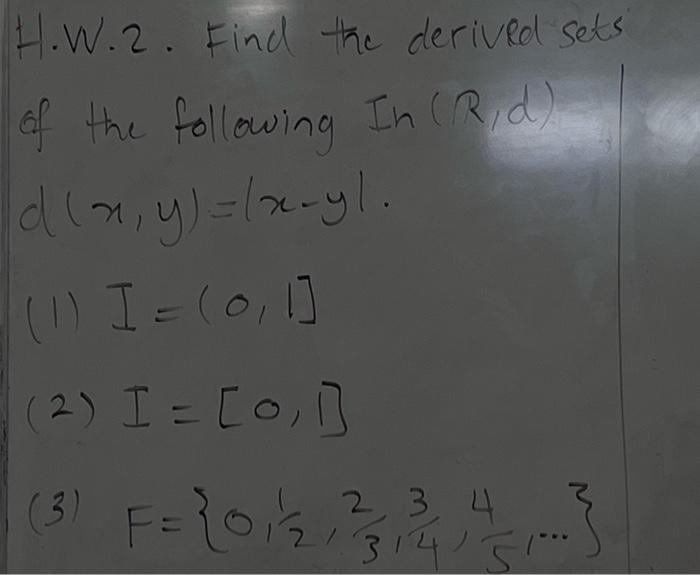 H.W.2. Find the derived sets
of the following In (R,d)
d(x,y)=|x-y|.
(1) I = (0,1]
(2) I = [0,1]
(3) F = {0, 1/2, 2/3, 3/4, 4/5, ...}